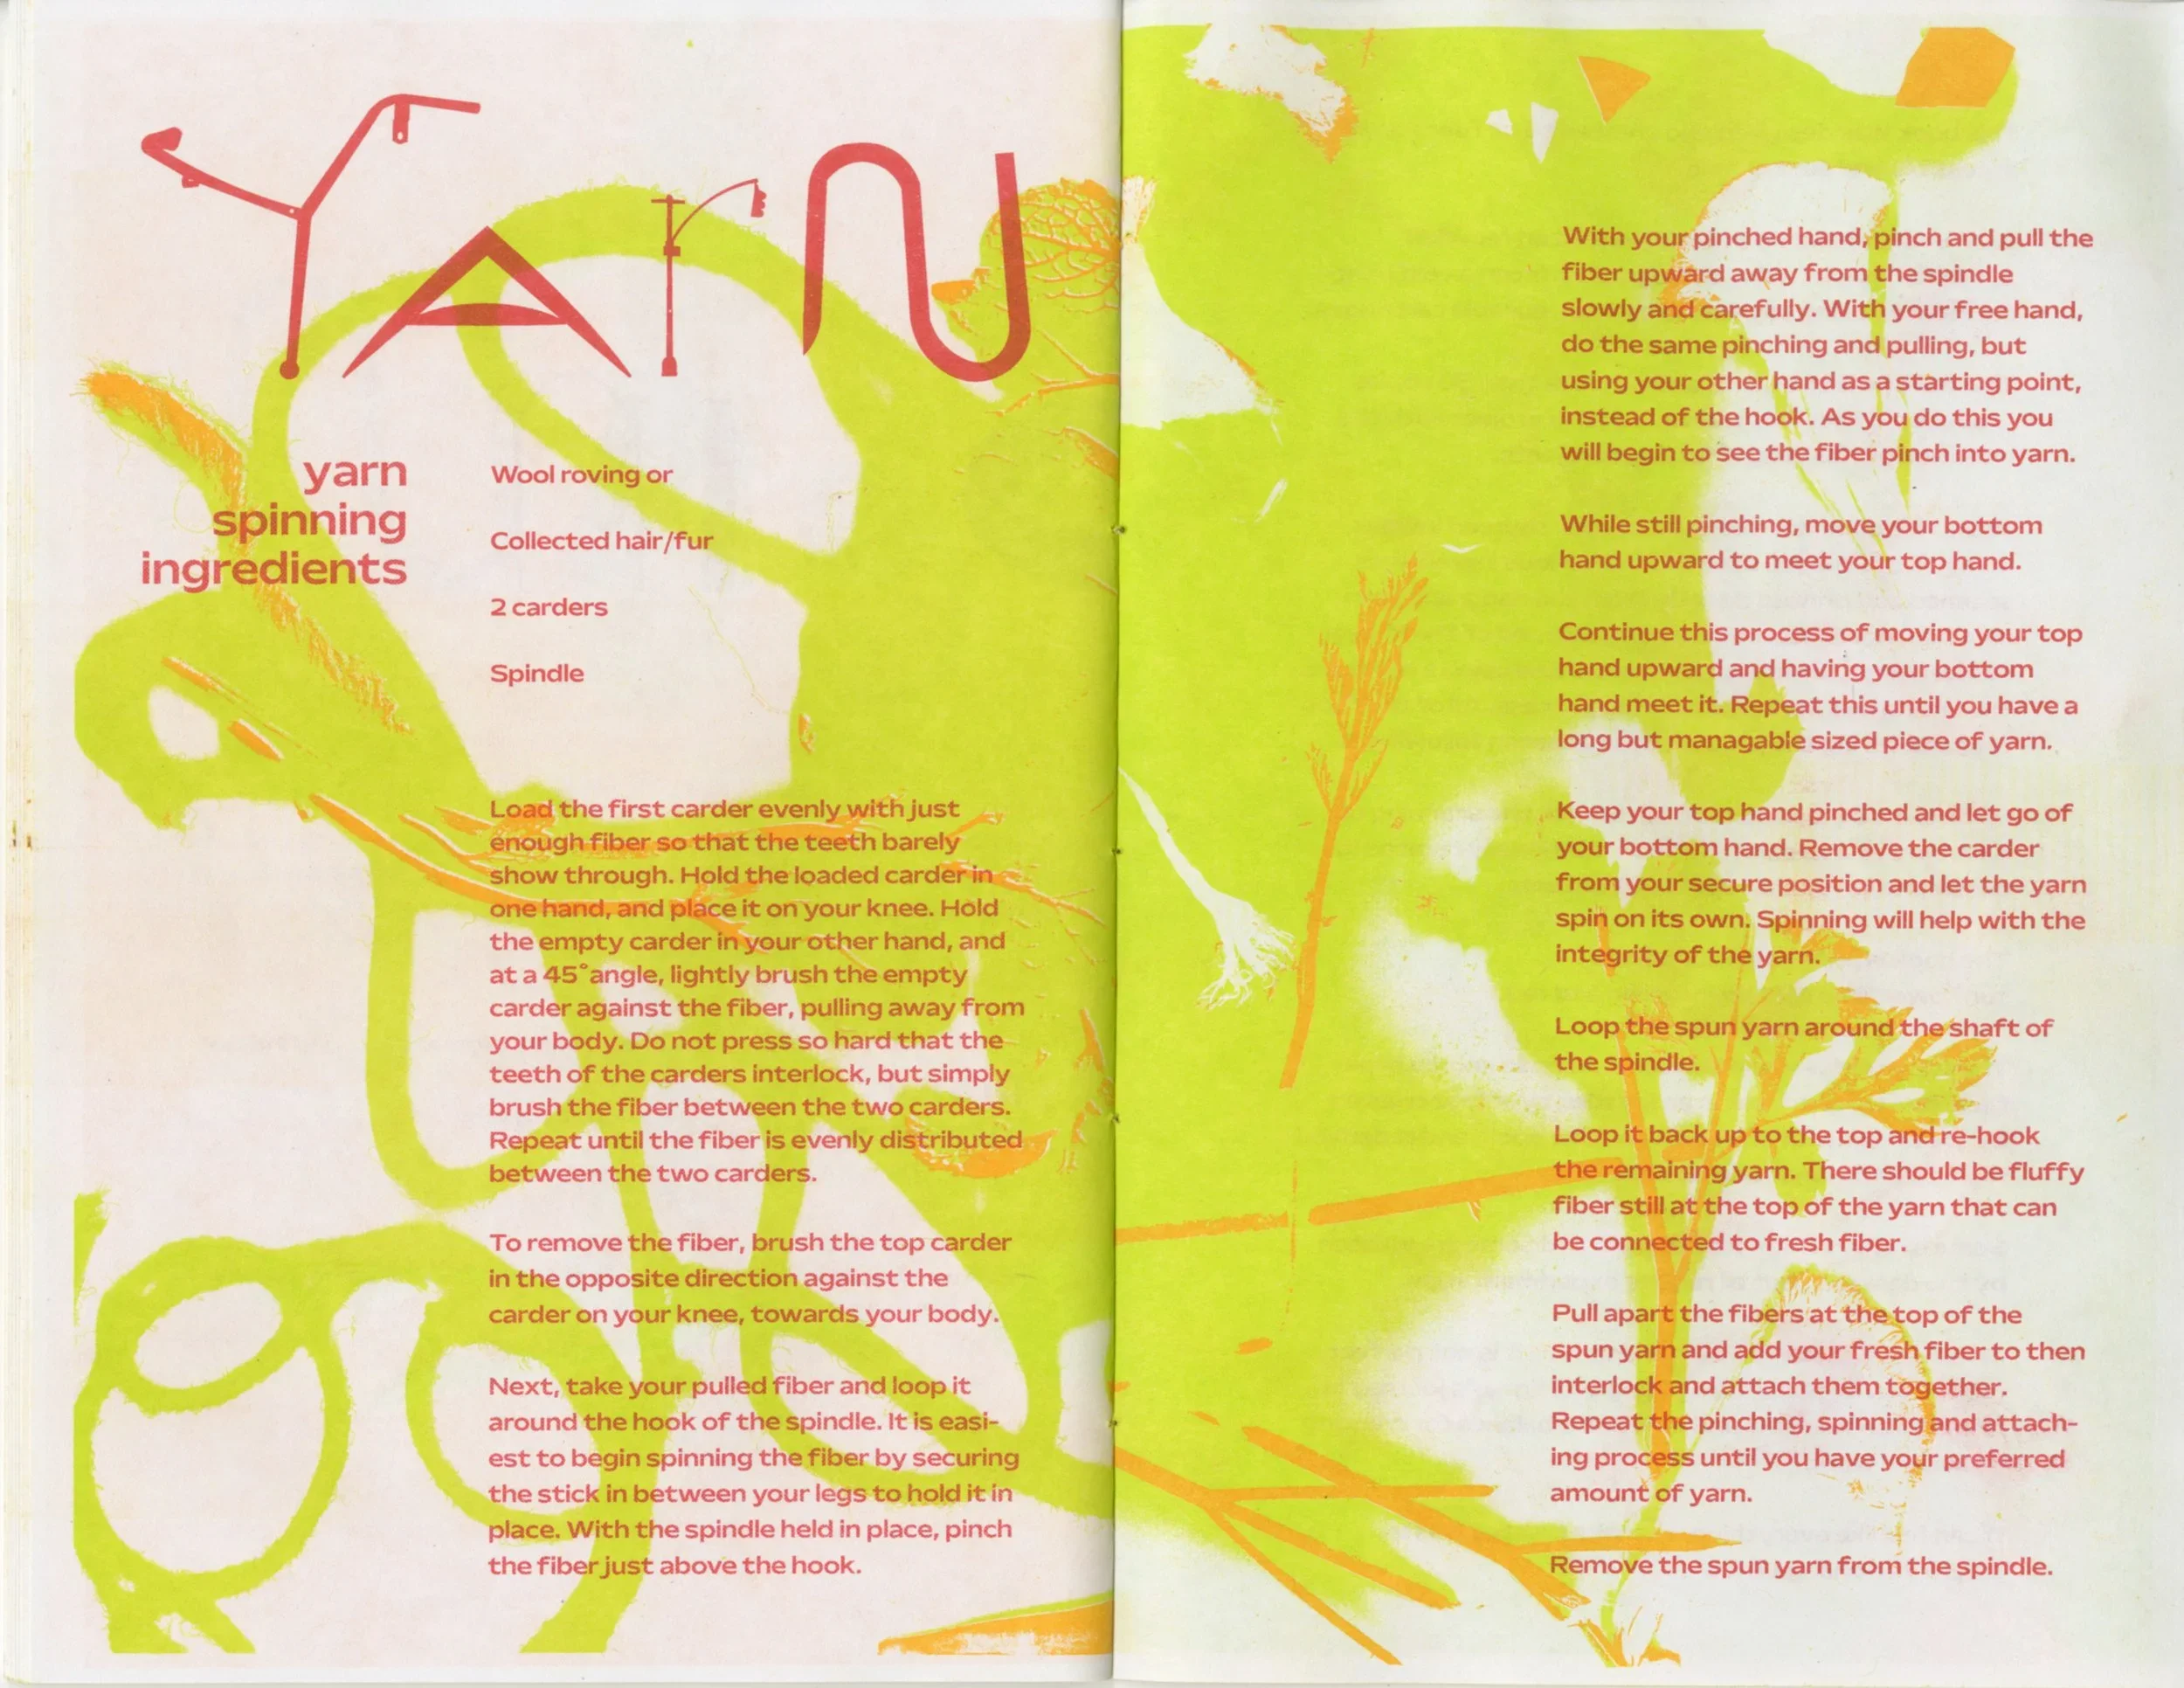 YArn
yarn
spinning
ingredients
Wool roving or
Collected hair/fur
2 carders
Spindle
Load the first carder evenly with just
enough fiber so that the teeth barely
show through. Hold the loaded carder in
one hand, and place it on your knee. Hold
the empty carder in your other hand, and
at a 45°angle, lightly brush the empty
carder against the fiber, pulling away from
your body. Do not press so hard that the
teeth of the carders interlock, but simply
brush the fiber between the two carders.
Repeat until the fiber is evenly distributed
between the two carders.
To remove the fiber, brush the top carder
in the opposite direction against the
carder on your knee, towards your body.
Next, take your pulled fiber and loop it
around the hook of the spindle. It is easi-
est to begin spinning the fiber by securing
the stick in between your legs to hold it in
place. With the spindle held in place, pinch
the fiber just above the hook.
With your pinched hand, pinch and pull the
fiber upward away from the spindle
slowly and carefully. With your free hand,
do the same pinching and pulling, but
using your other hand as a starting point,
instead of the hook. As you do this you
will begin to see the fiber pinch into yarn.
While still pinching, move your bottom
hand upward to meet your top hand.
Continue this process of moving your top
hand upward and having your bottom
hand meet it. Repeat this until you have a
long but managable sized piece of yarn.
Keep your top hand pinched and let go of
your bottom hand. Remove the carder
from your secure position and let the yarn
spin on its own. Spinning will help with the
integrity of the yarn.
Loop the spun yarn around the shaft of
the spindle.
Loop it back up to the top and re-hook
the remaining yarn. There should be fluffy
fiber still at the top of the yarn that can
be connected to fresh fiber.
Pull apart the fibers at the top of the
spun yarn and add your fresh fiber to then
interlock and attach them together.
Repeat the pinching, spinning and attach-
ing process until you have your preferred
amount of yarn.
Remove the spun yarn from the spindle.